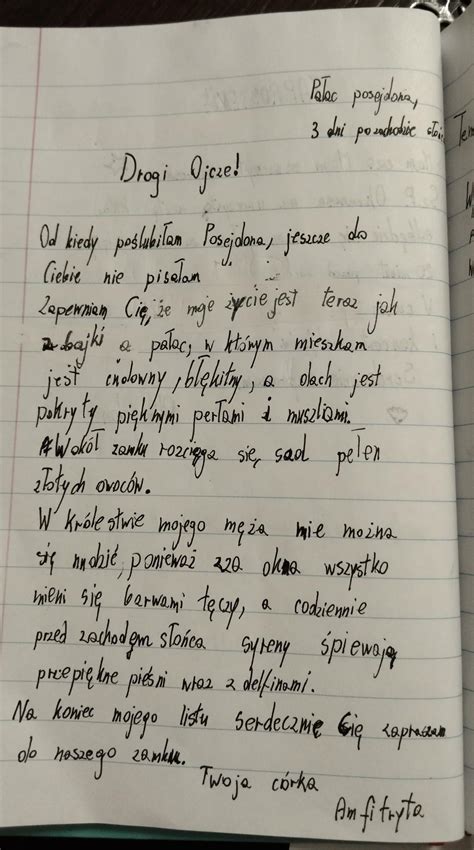 Pałac posejdona,
3 dni po zachodzie słoń
Drogi Ojcze!
Od kiedy poślubiłam Posejdona, jeszcze do
Ciebie nie pisałam
Zapewniam Cię, że moje życie jest teraz jak
z bajki a pałac, w którym mieszkam
jest cudowny, błękitny, a dach jest
pokryty pięknymi perłami i muszlami.
Wokół zamku rozciąga się, sad pełen
złotych owoców.
W królestwie mojego męża nie można
się nudzić, ponieważ za okna wszystko
mieni się barwami tęczy, a codziennie
przed zachodem słońca syreny śpiewają
przepiękne pieśni wraz z delfinami.
Na koniec mojego listu serdecznie Cię zapraszam
do naszego zamku.
Twoja córka
Amfitryta